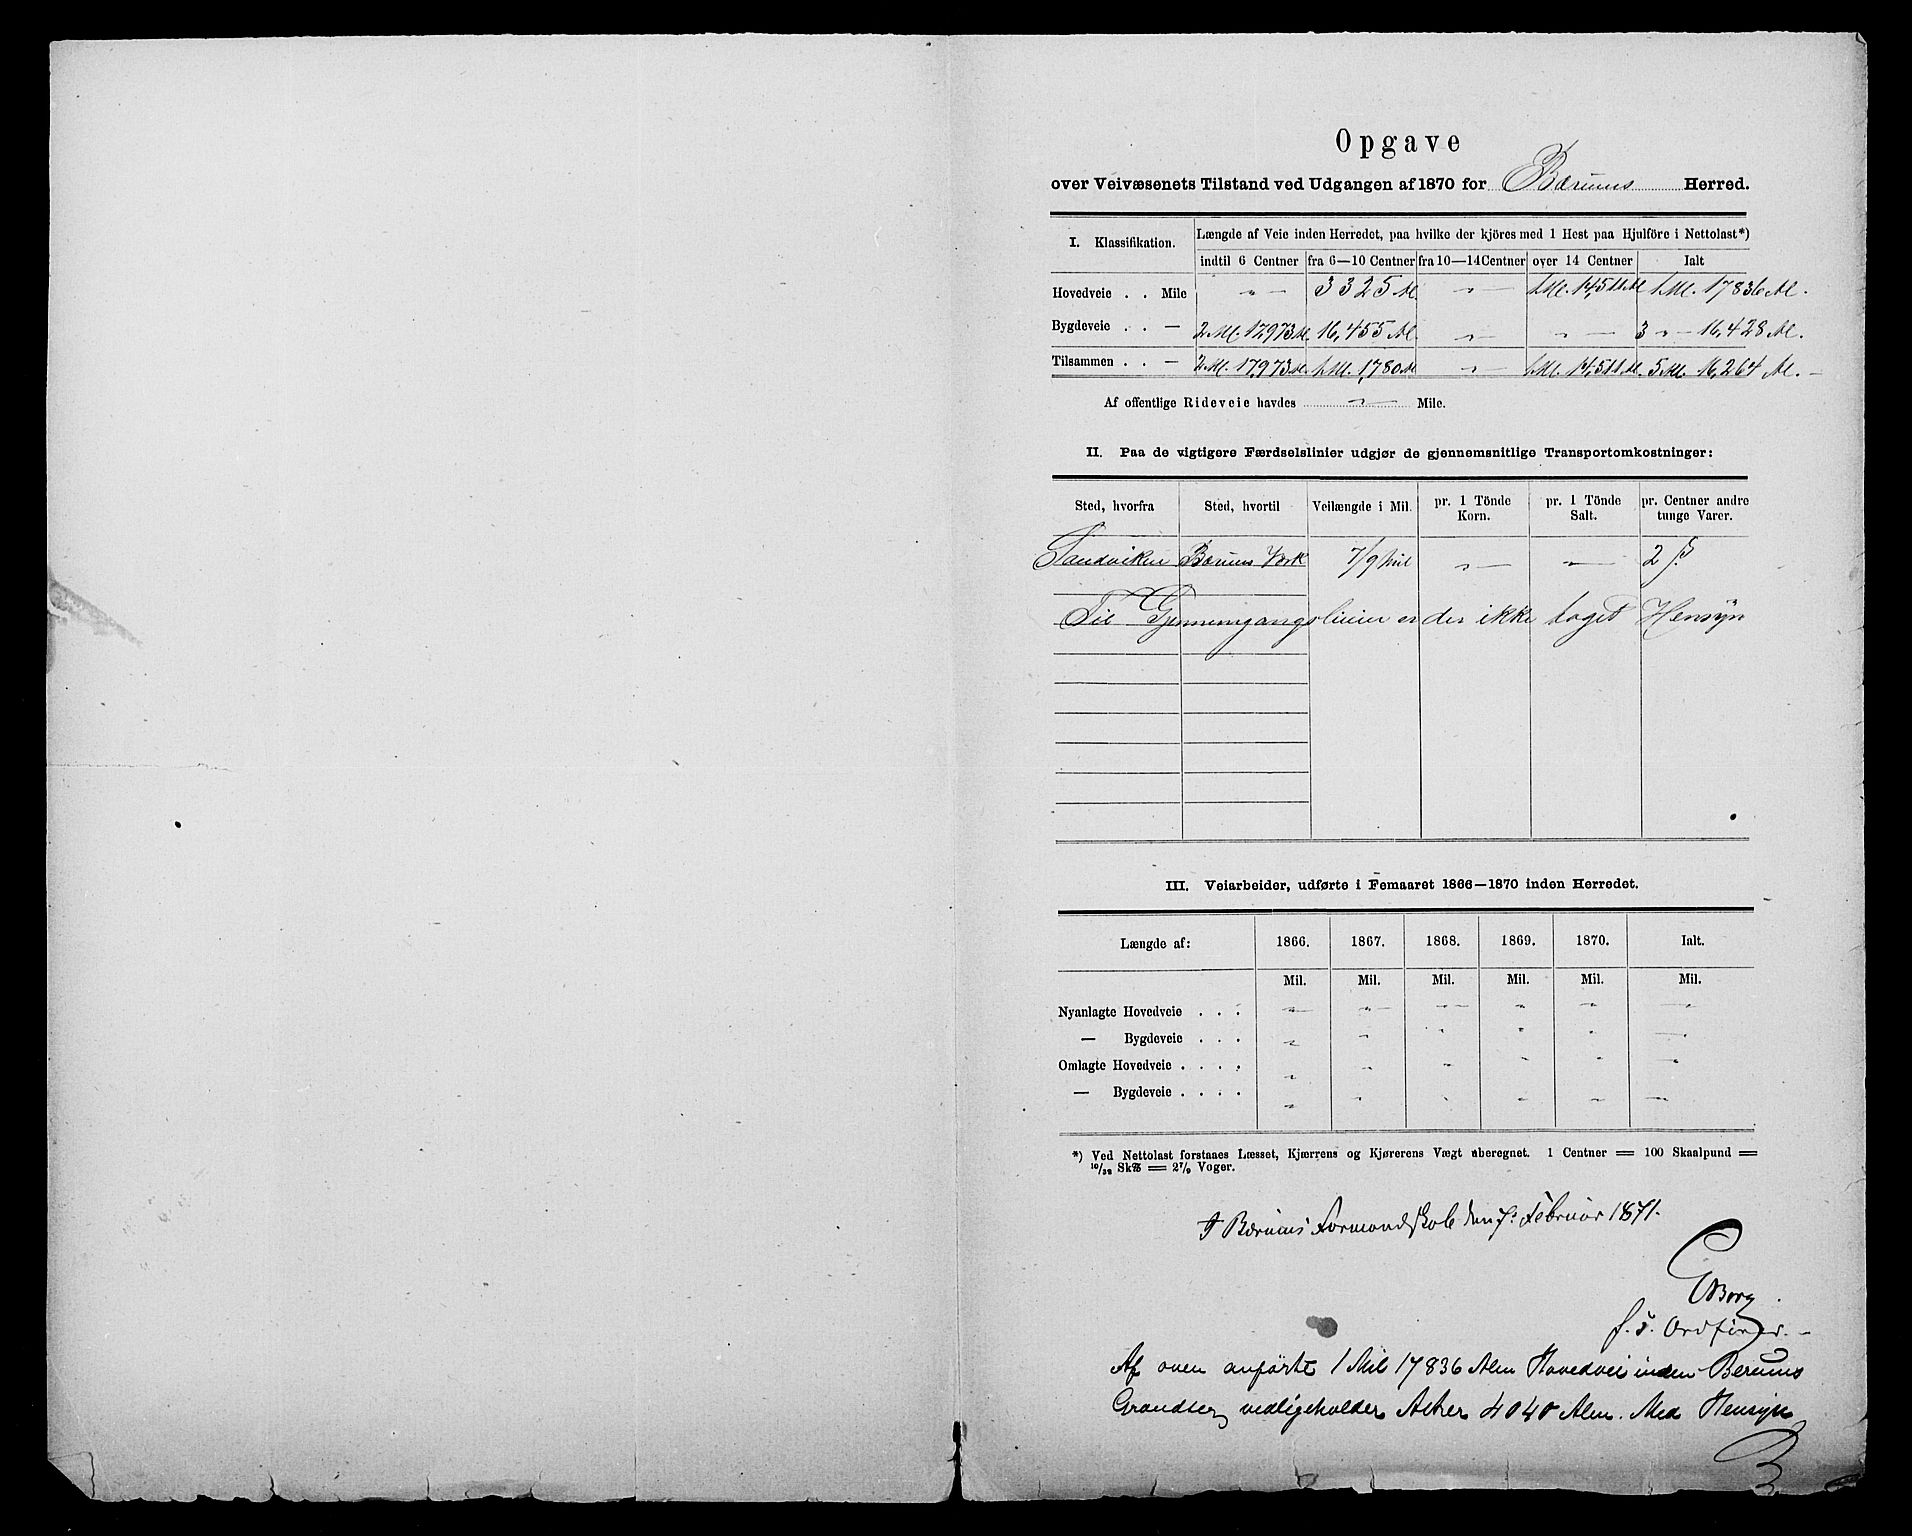 Opgave
over Veivæsenets Tilstand ved Udgangen af 1870 for Bærums Herred.
I. Klassifikation. Længde af Veie inden Herredet, paa hvilke der kjöres med 1 Hest paa Hjulföre i Nettolast*)
indtil 6 Centner fra 6—10 Centner fra 10—14 Centner over 14 Centner Ialt
Hovedveie . . Mile " — 3325 Al. " — 1 Ml. 14,511 Al. 1 Ml. 17836 Al.
Bygdeveie . . — 2 Ml. 17,973 Al. 16,455 Al. " — " — 3 " — 16,428 Al.
Tilsammen . . — 2 Ml. 17,973 Al. 1 Ml. 1,780 Al. " — 1 Ml. 14,511 Al. 5 Ml. 16,264 Al. —
Af offentlige Rideveie havdes " — Mile.
II. Paa de vigtigere Færdselslinier udgjør de gjennemsnitlige Transportomkostninger:
Sted, hvorfra Sted, hvortil Veilængde i Mil. pr. 1 Tönde Korn. pr. 1 Tönde Salt. pr. Centner andre tunge Varer.
Sandviken Bærums Værk 7/9 Mil " — " — 2 ß.
Til Gjennemgangslinier er der ikke taget Hensyn
III. Veiarbeider, udførte i Femaaret 1866—1870 inden Herredet.
Længde af: 1866. 1867. 1868. 1869. 1870. Ialt.
Mil. Mil. Mil. Mil. Mil. Mil.
Nyanlagte Hovedveie . . . " — " — " — " — " — " —
— Bygdeveie . . . " — " — " " — " " —
Omlagte Hovedveie . . . . " — " — " — " — " " —
— Bygdeveie . . . . " — " — " — " — " — " —
*) Ved Nettolast forstaaes Læsset, Kjærrens og Kjørerens Vægt uberegnet. 1 Centner = 100 Skaalpund =
10/32 Sk℔ = 2 7/9 Voger.
I Bærums Formandskab den 7: Februar 1871.
Borg
f. t. Ordfører. —
Af oven anførte 1 Mil 17836 Alen Hovedvei inden Berums
Grændser vedligeholder Asker 4040 Alen. Med Hensyn